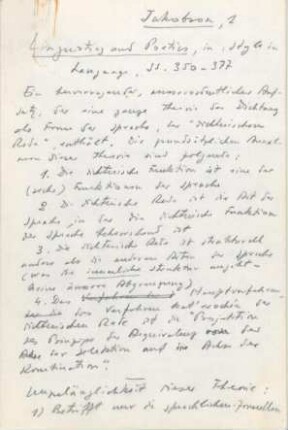 Jakobson, 1
Linguistics and Poetics, in: Style in
Language, SS. 350-377
Ein hervorragender, ausserordentlicher Auf-
satz, der eine ganze Theorie der Dichtung
als Form der Sprache, der "dichterischen
Rede" enthält. Die grundsätzlichen
dieser Theorie sind folgende:
1. Die dichterische Funktion ist eine der
(sechs) Funktionen der Sprache
2. Die dichterische Rede ist die Art der
Sprache, in der die dichterische Funktion
der Sprache beherrschend ist
3. Die dichterische Rede ist strukturell
anders als die anderen Arten der Sprache
(was die innerliche Struktur angeht -
keine äussere Abgrenzung)
4. Das Hauptverfahren
der
dichterischen Rede ist die "Projektion
des Prinzips der Äquivalenz von der
Achse der Selektion auf die Achse der
Kombination".
Unzulänglichkeit dieser Theorie:
1) Betrifft nur die sprachlichen